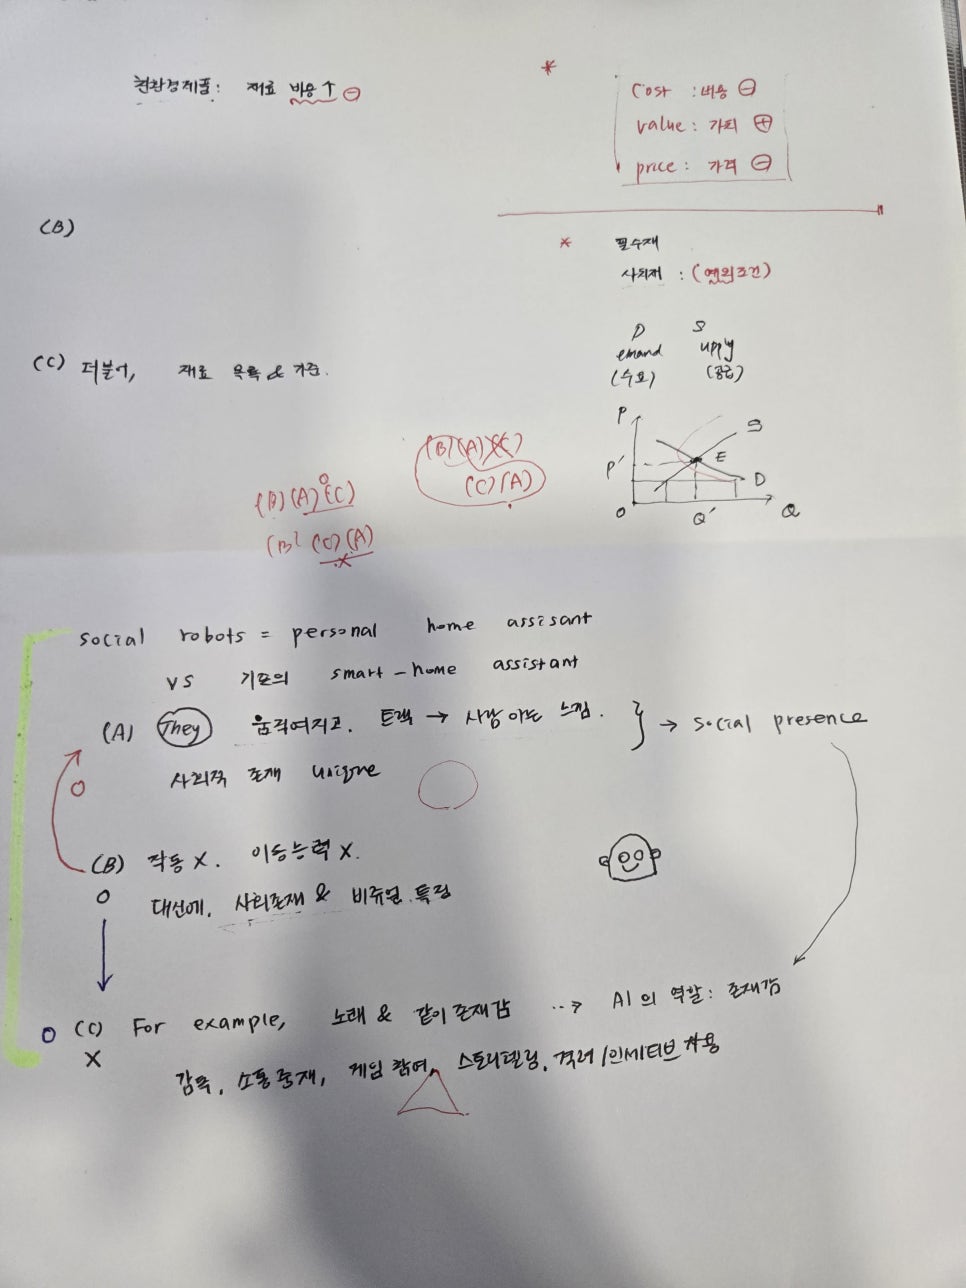 친환경제품: 재료 비용↑ ⊖
*
Cost : 비용 ⊖
value : 가치 ⊕
price : 가격 ⊖
(B)
* 필수재
사치재 : (예외조건)
(C) 더불어, 재료 목록 & 기준.
D S
emand upply
(수요) (공급)
P S
P' E
D
O Q' Q
(B)(A)(C)
(C)(A)
(B)(A)(C)
(B) (C)(A)
social robots = personal home assisant
vs 기존의 smart-home assistant
(A) They 움직여지고. 트랙 → 사람 아는 느낌. } → social presence
사회적 존재 unique
(B) 작동 X. 이동능력 X.
O 대신에, 사회존재 & 비쥬얼 특징
O (C) For example, 노래 & 같이 존재감 ⇢ AI의 역할: 존재감
X 감독, 소통 중재, 게임 참여, 스토리텔링, 격려/인세티브 차용